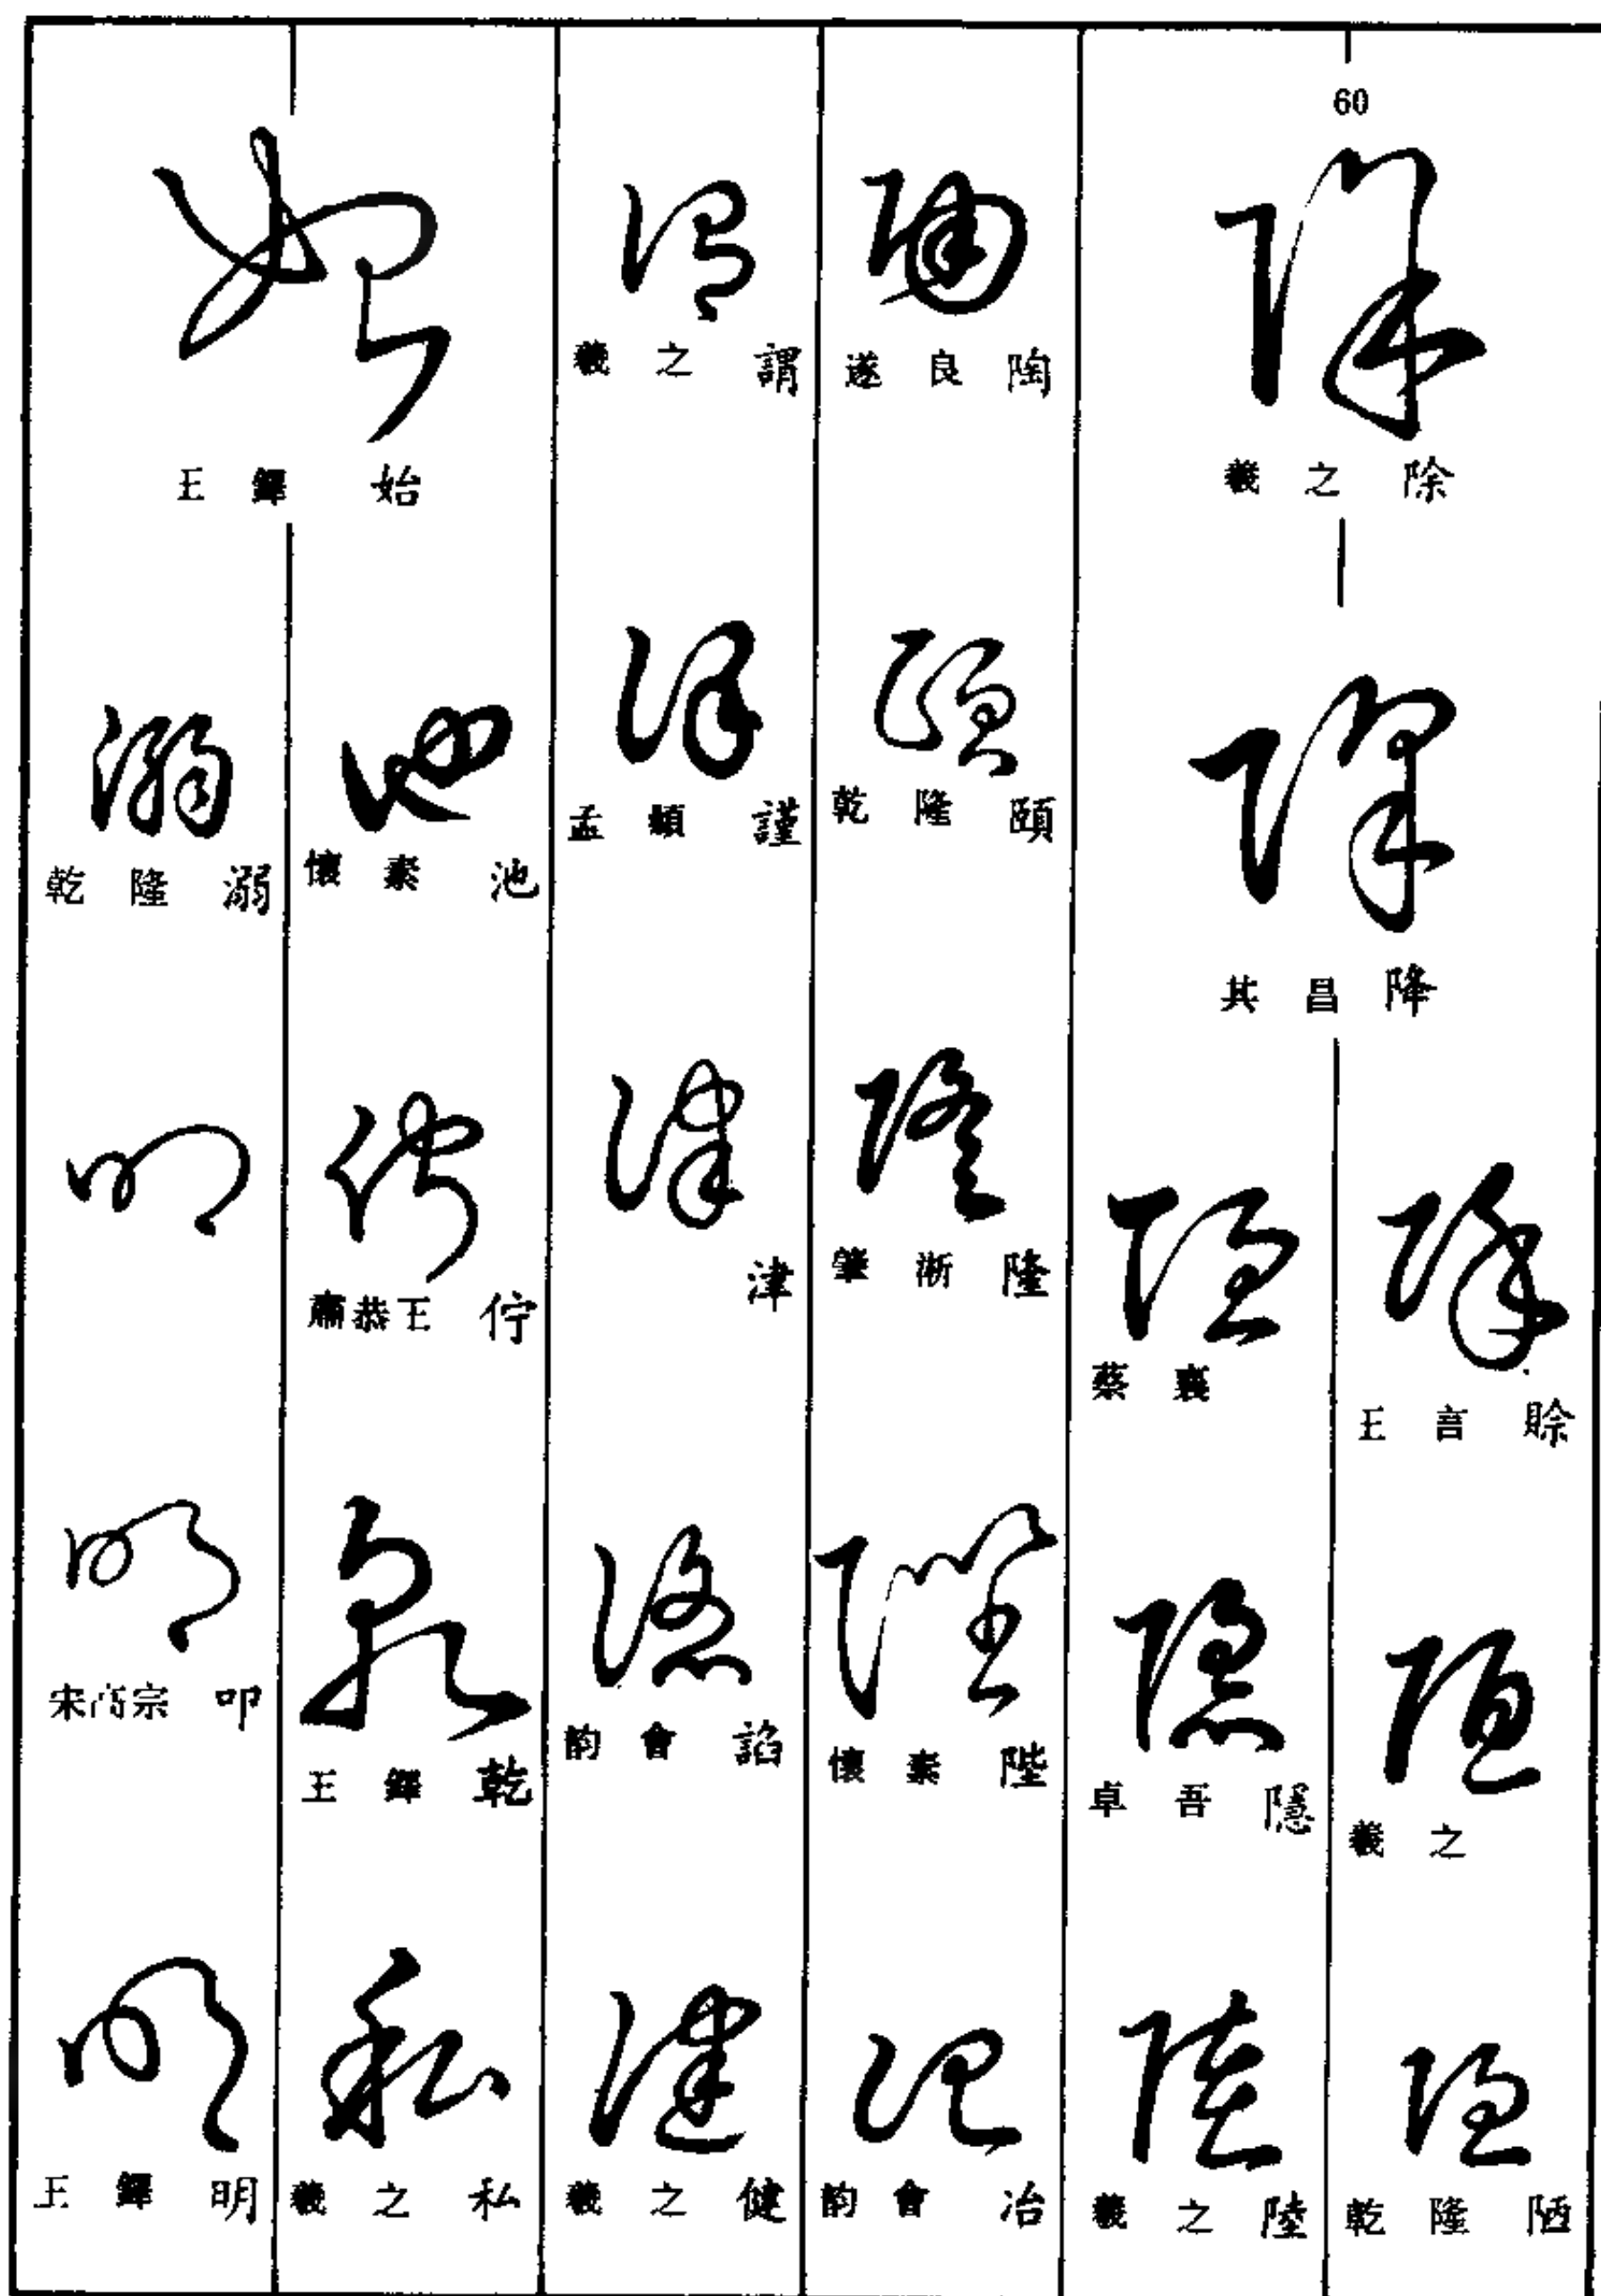 60
羲之 除
其昌 降
王言 賒
羲之
乾隆 陋
蔡襄
卓吾 隱
羲之 陸
遂良 陶
乾隆 頤
肇淅 隆
懷素 陛
韵會 冶
羲之 謂
孟頫 謹
津
韵會 諂
羲之 健
王鐸 始
懷素 池
肅恭王 佇
王鐸 乾
羲之 私
乾隆 溺
宋高宗 叩
王鐸 明